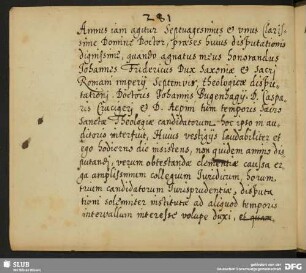 281
Annus iam agitur Septuagesimus et vnus Claris-
sime Domine Doctor, praeses huius disputationis
dignissime, quando agnatus meus honorandus
Iohannes Fridericus Dux Saxoniae et Sacri
Romani imperij Septemvir, theologicae dispu-
tationi, Doctoris Iohannis Bugenhagij D. Caspa-
ris Cruciger, et D. Aepini tum temporis Sacro
Sanctae Theologiae candidatorum, hoc ipso in au-
ditorio interfuit, Huius vestigijs laudabiliter et
ego hodierno die insistens, non quidem animo dis-
putandi, verum obtestandae clementiae caussa er-
ga amplissimum collegium Iuridicum, horum,
trium candidatorum Iurisprudentiae, disputa-
tioni solemniter institutae ad aliquod temporis
intervallum interesse volupe duxi,
SLUB
Wir führen Wissen.
DFG